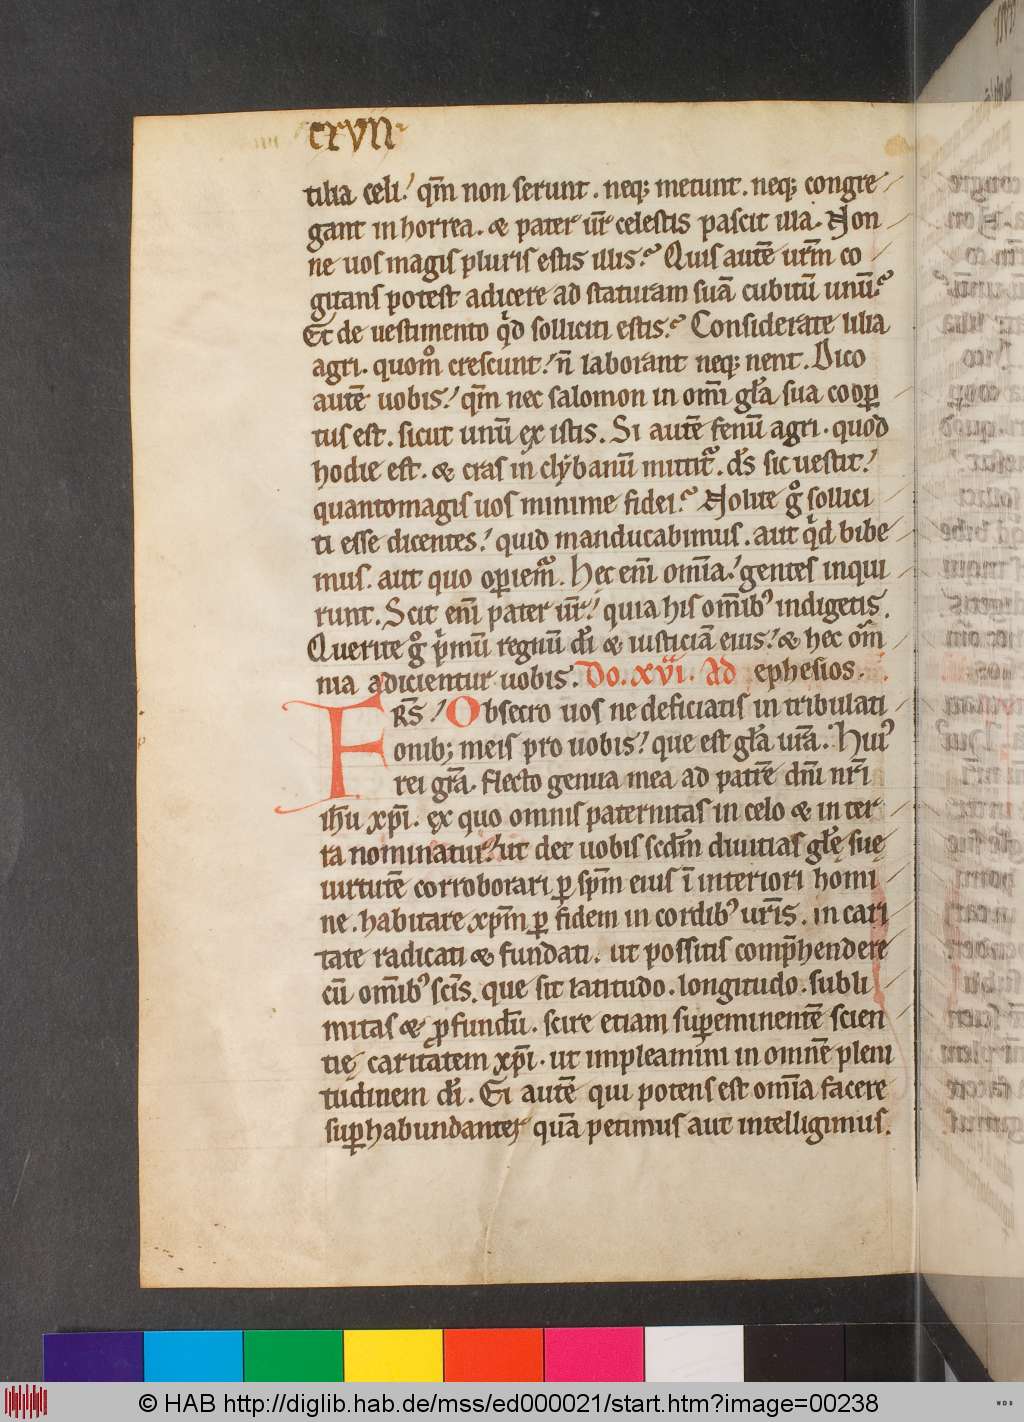 cxvii
tilia celi. qm̄ non serunt. neq; metunt. neq; congre
gant in horrea. & pater ur̄ celestis pascit illa. Non
ne uos magis pluris estis illis? Quis autē urm̄ co
gitans potest adicere ad staturam suā cubitū unū?
Et de uestimento qͥd solliciti estis? Considerate lilia
agri. quomͦ crescunt. n̄ laborant neq; nent. Dico
autē uobis. qm̄ nec salomon in om̄i gl̄a sua coop̱
tus est. sicut unū ex istis. Si autē fenū agri. quod
hodie est. & cras in clybanū mittit᷑. ds̄ sic uestit.
quantomagis uos minime fidei? Nolite gͦ sollici
ti esse dicentes. quid manducabimus. aut qͥd bibe
mus. aut quo op̱iem᷑. Hec eni̅ om̄ia. gentes inqui
runt. Scit eni̅ pater ur̄. quia his om̄ibꝰ indigetis.
Querite gͦ pͥmū regnū di̅ & iusticiā eius. & hec om̄
nia adicientur uobis. Do. xvi. Ad ephesios.
FRS̄. Obsecro uos ne deficiatis in tribulati
onib; meis pro uobis. que est gl̄a ur̄a. Huiꝰ
rei gr̄a. flecto genua mea ad patrē dn̄i nr̄i
ih̄u xp̄i. ex quo omnis paternitas in celo & in ter
ra nominatur. ut det uobis scdm̄ diuitias gl̄ę suę
uirtutē corroborari ꝑ spm̄ eius ī interiori homi
ne. habitare xpm̄ ꝑ fidem in cordibꝰ ur̄is. in cari
tate radicati & fundati. ut possitis comp̄hendere
cū om̄ibꝰ sc̄is. que sit latitudo. longitudo. subli
mitas & ꝓfundū. scire etiam suꝑeminentē scien
tię caritatem xp̄i. ut impleamini in omnē pleni
tudinem di̅. Ei autē qui potens est om̄ia facere
suꝑhabundanter quā petimus aut intelligimus.
© HAB http://diglib.hab.de/mss/ed000021/start.htm?image=00238